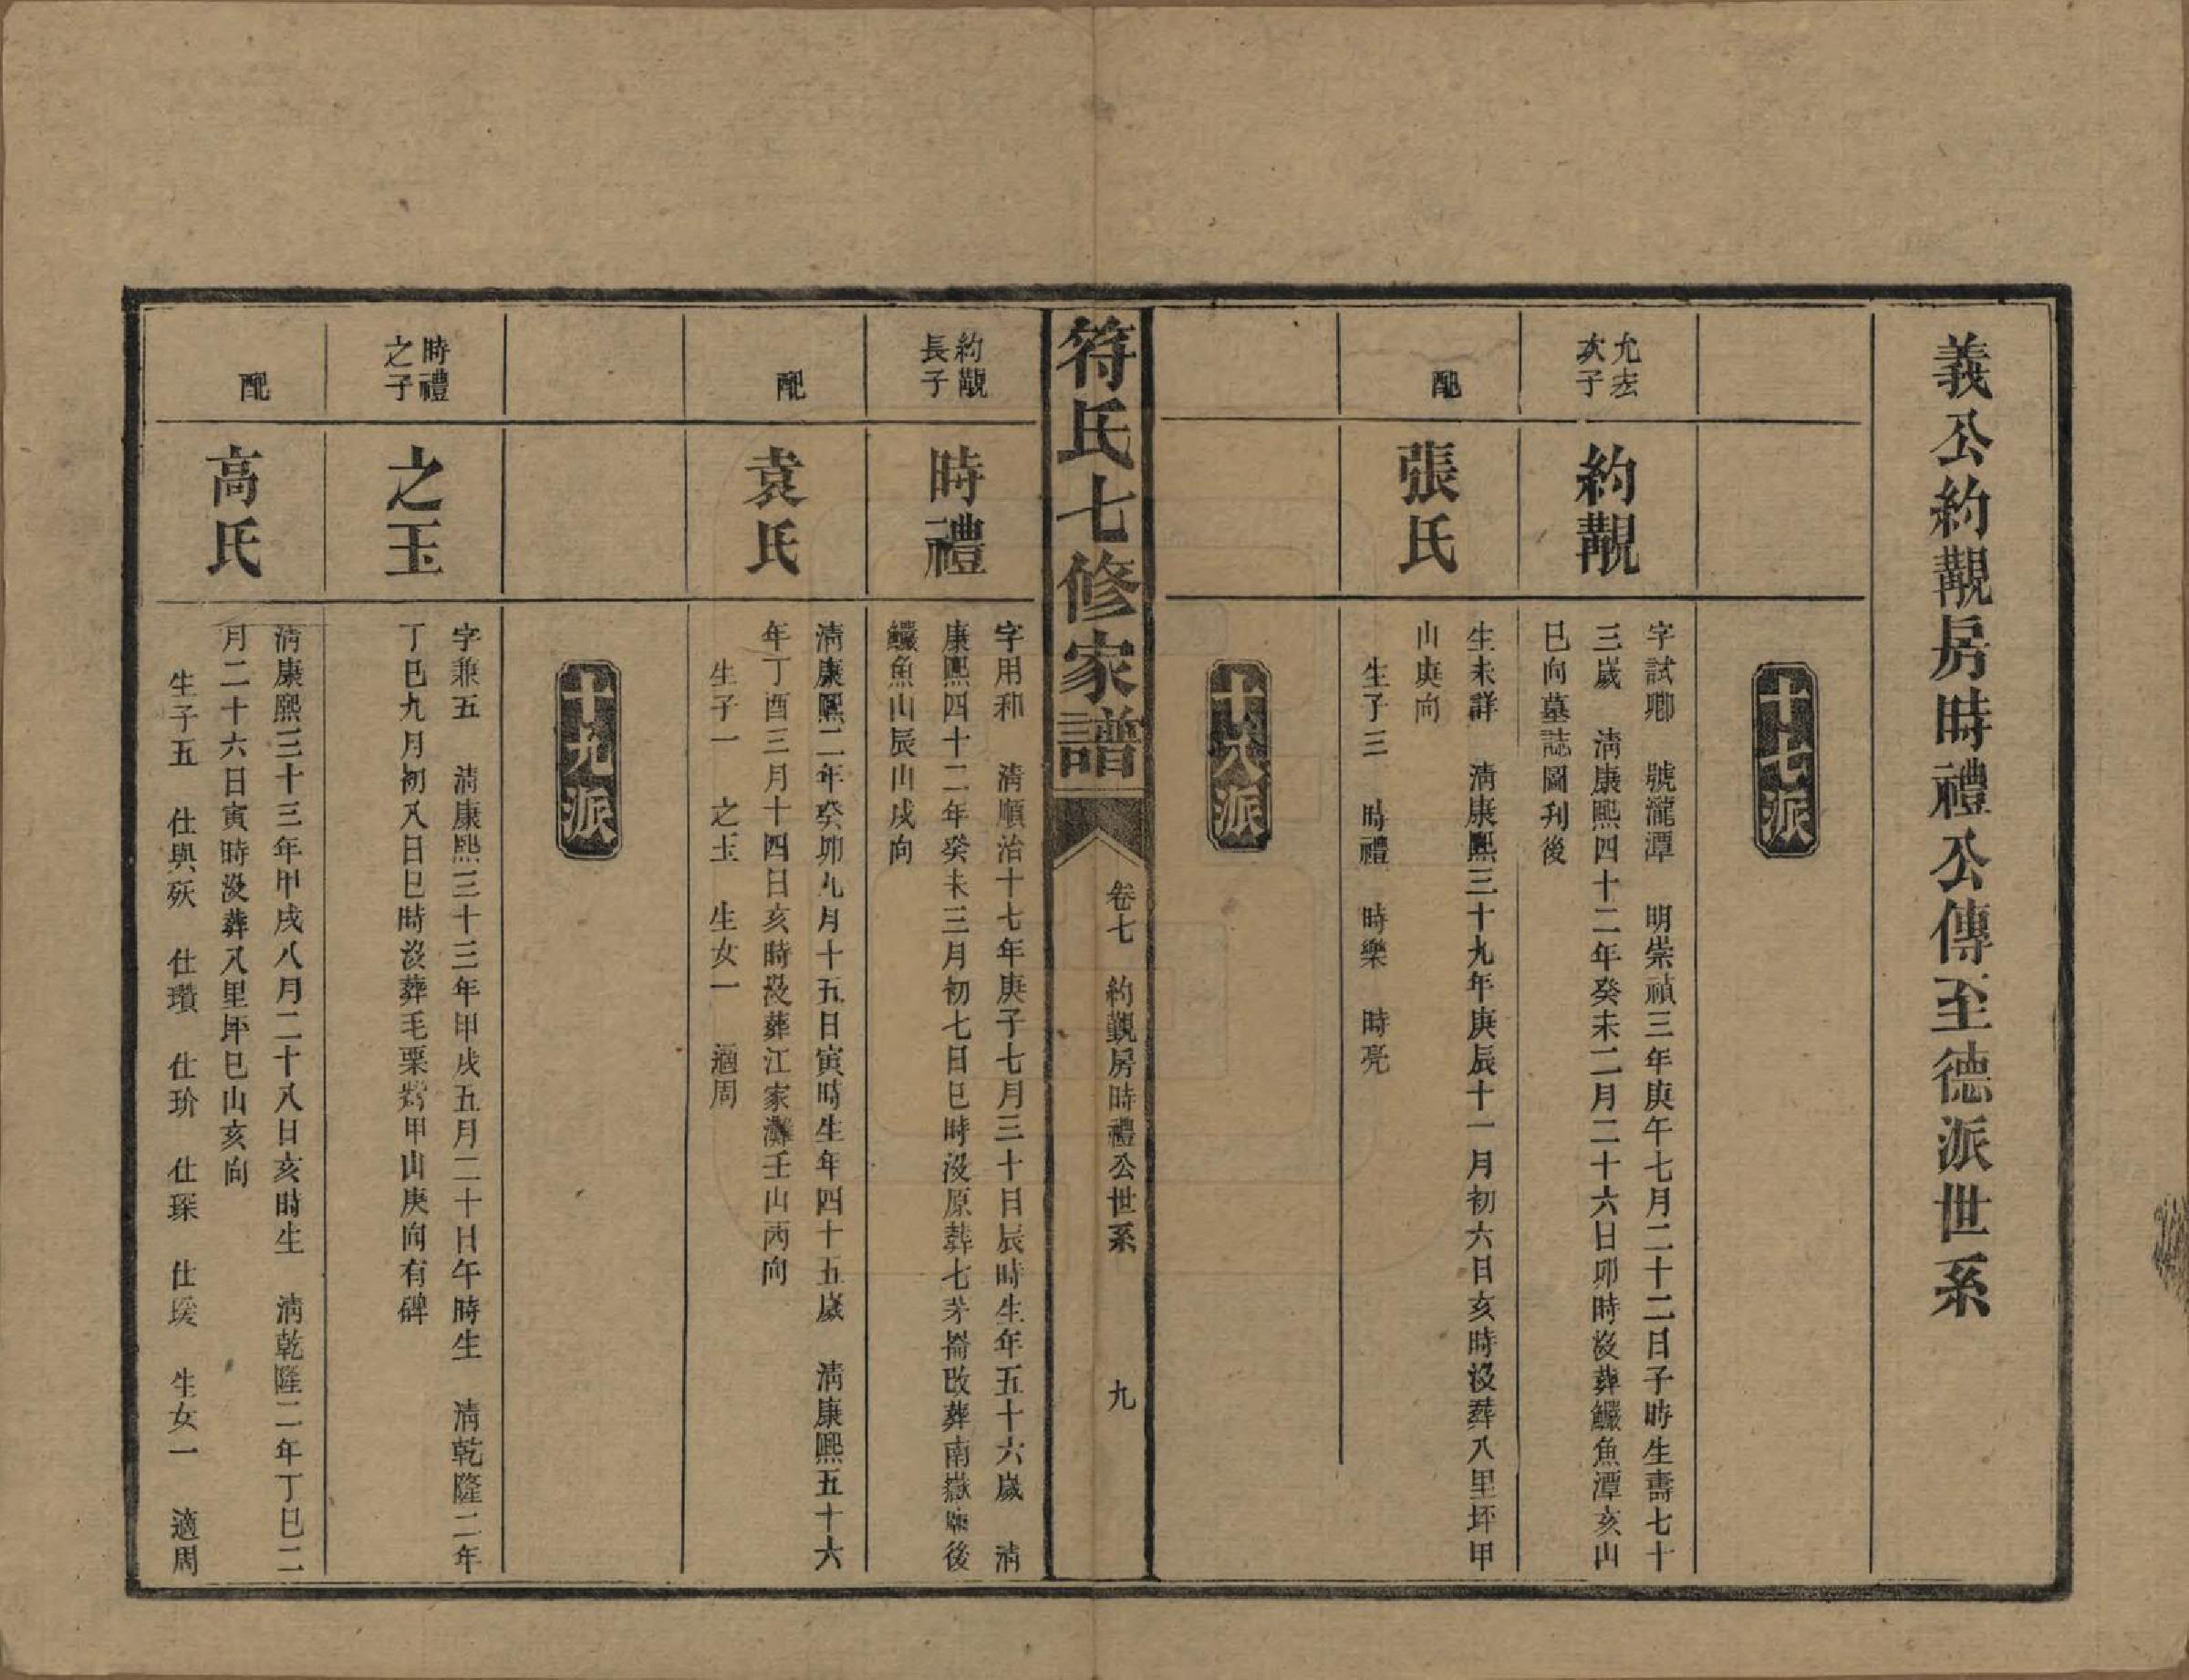 義公約覯房時禮公傳至德派世系
十七派
允宏
次子
約覯
字試卿　號瀧潭　明崇禎三年庚午七月二十二日子時生壽七十
三歲　清康熙四十二年癸未二月二十六日卯時沒葬鱺魚潭亥山
巳向墓誌圖刋後
配
張氏
生未詳　清康熙三十九年庚辰十一月初六日亥時沒葬八里坪甲
山庚向
生子三　時禮　時樂　時亮
十八派
符氏七修家譜
卷七　約覯房時禮公世系
九
約覯
長子
時禮
字用和　清順治十七年庚子七月三十日辰時生年五十六歲　清
康熙四十二年癸未三月初七日巳時沒原葬七芽崙改葬南嶽廟後
鱺魚山辰山戌向
配
袁氏
清康熙二年癸卯九月十五日寅時生年四十五歲　清康熙五十六
年丁酉三月十四日亥時沒葬江家灘壬山丙向
生子一　之玉　生女一　適周
十九派
時禮
之子
之玉
字兼五　清康熙三十三年甲戌五月二十日午時生　清乾隆二年
丁巳九月初八日巳時沒葬毛栗甲山庚向有碑
配
高氏
清康熙三十三年甲戌八月二十八日亥時生　清乾隆二年丁巳二
月二十六日寅時沒葬八里坪巳山亥向
生子五　仕與殀　仕瓚　仕玠　仕琛　仕　生女一　適周